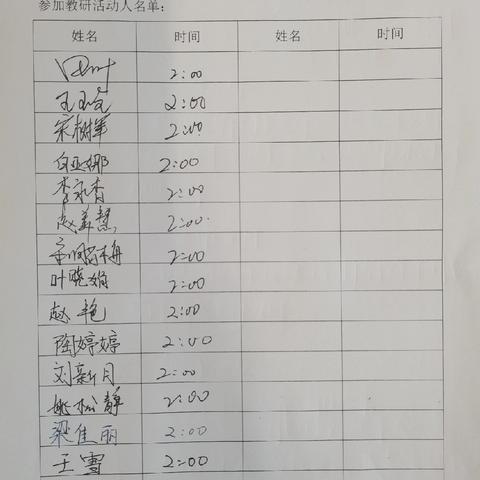 参加教研活动人名单:
姓名 时间 姓名 时间
2:00
2:00
宋树军 2:00
白亚娜 2:00
李永香 2:00
赵美慧 2:00
2:00
叶晓娟 2:00
赵艳 2:00
陶婷婷 2:00
刘新月 2:00
姚松静 2:00
梁佳丽 2:00
王雪 2:00